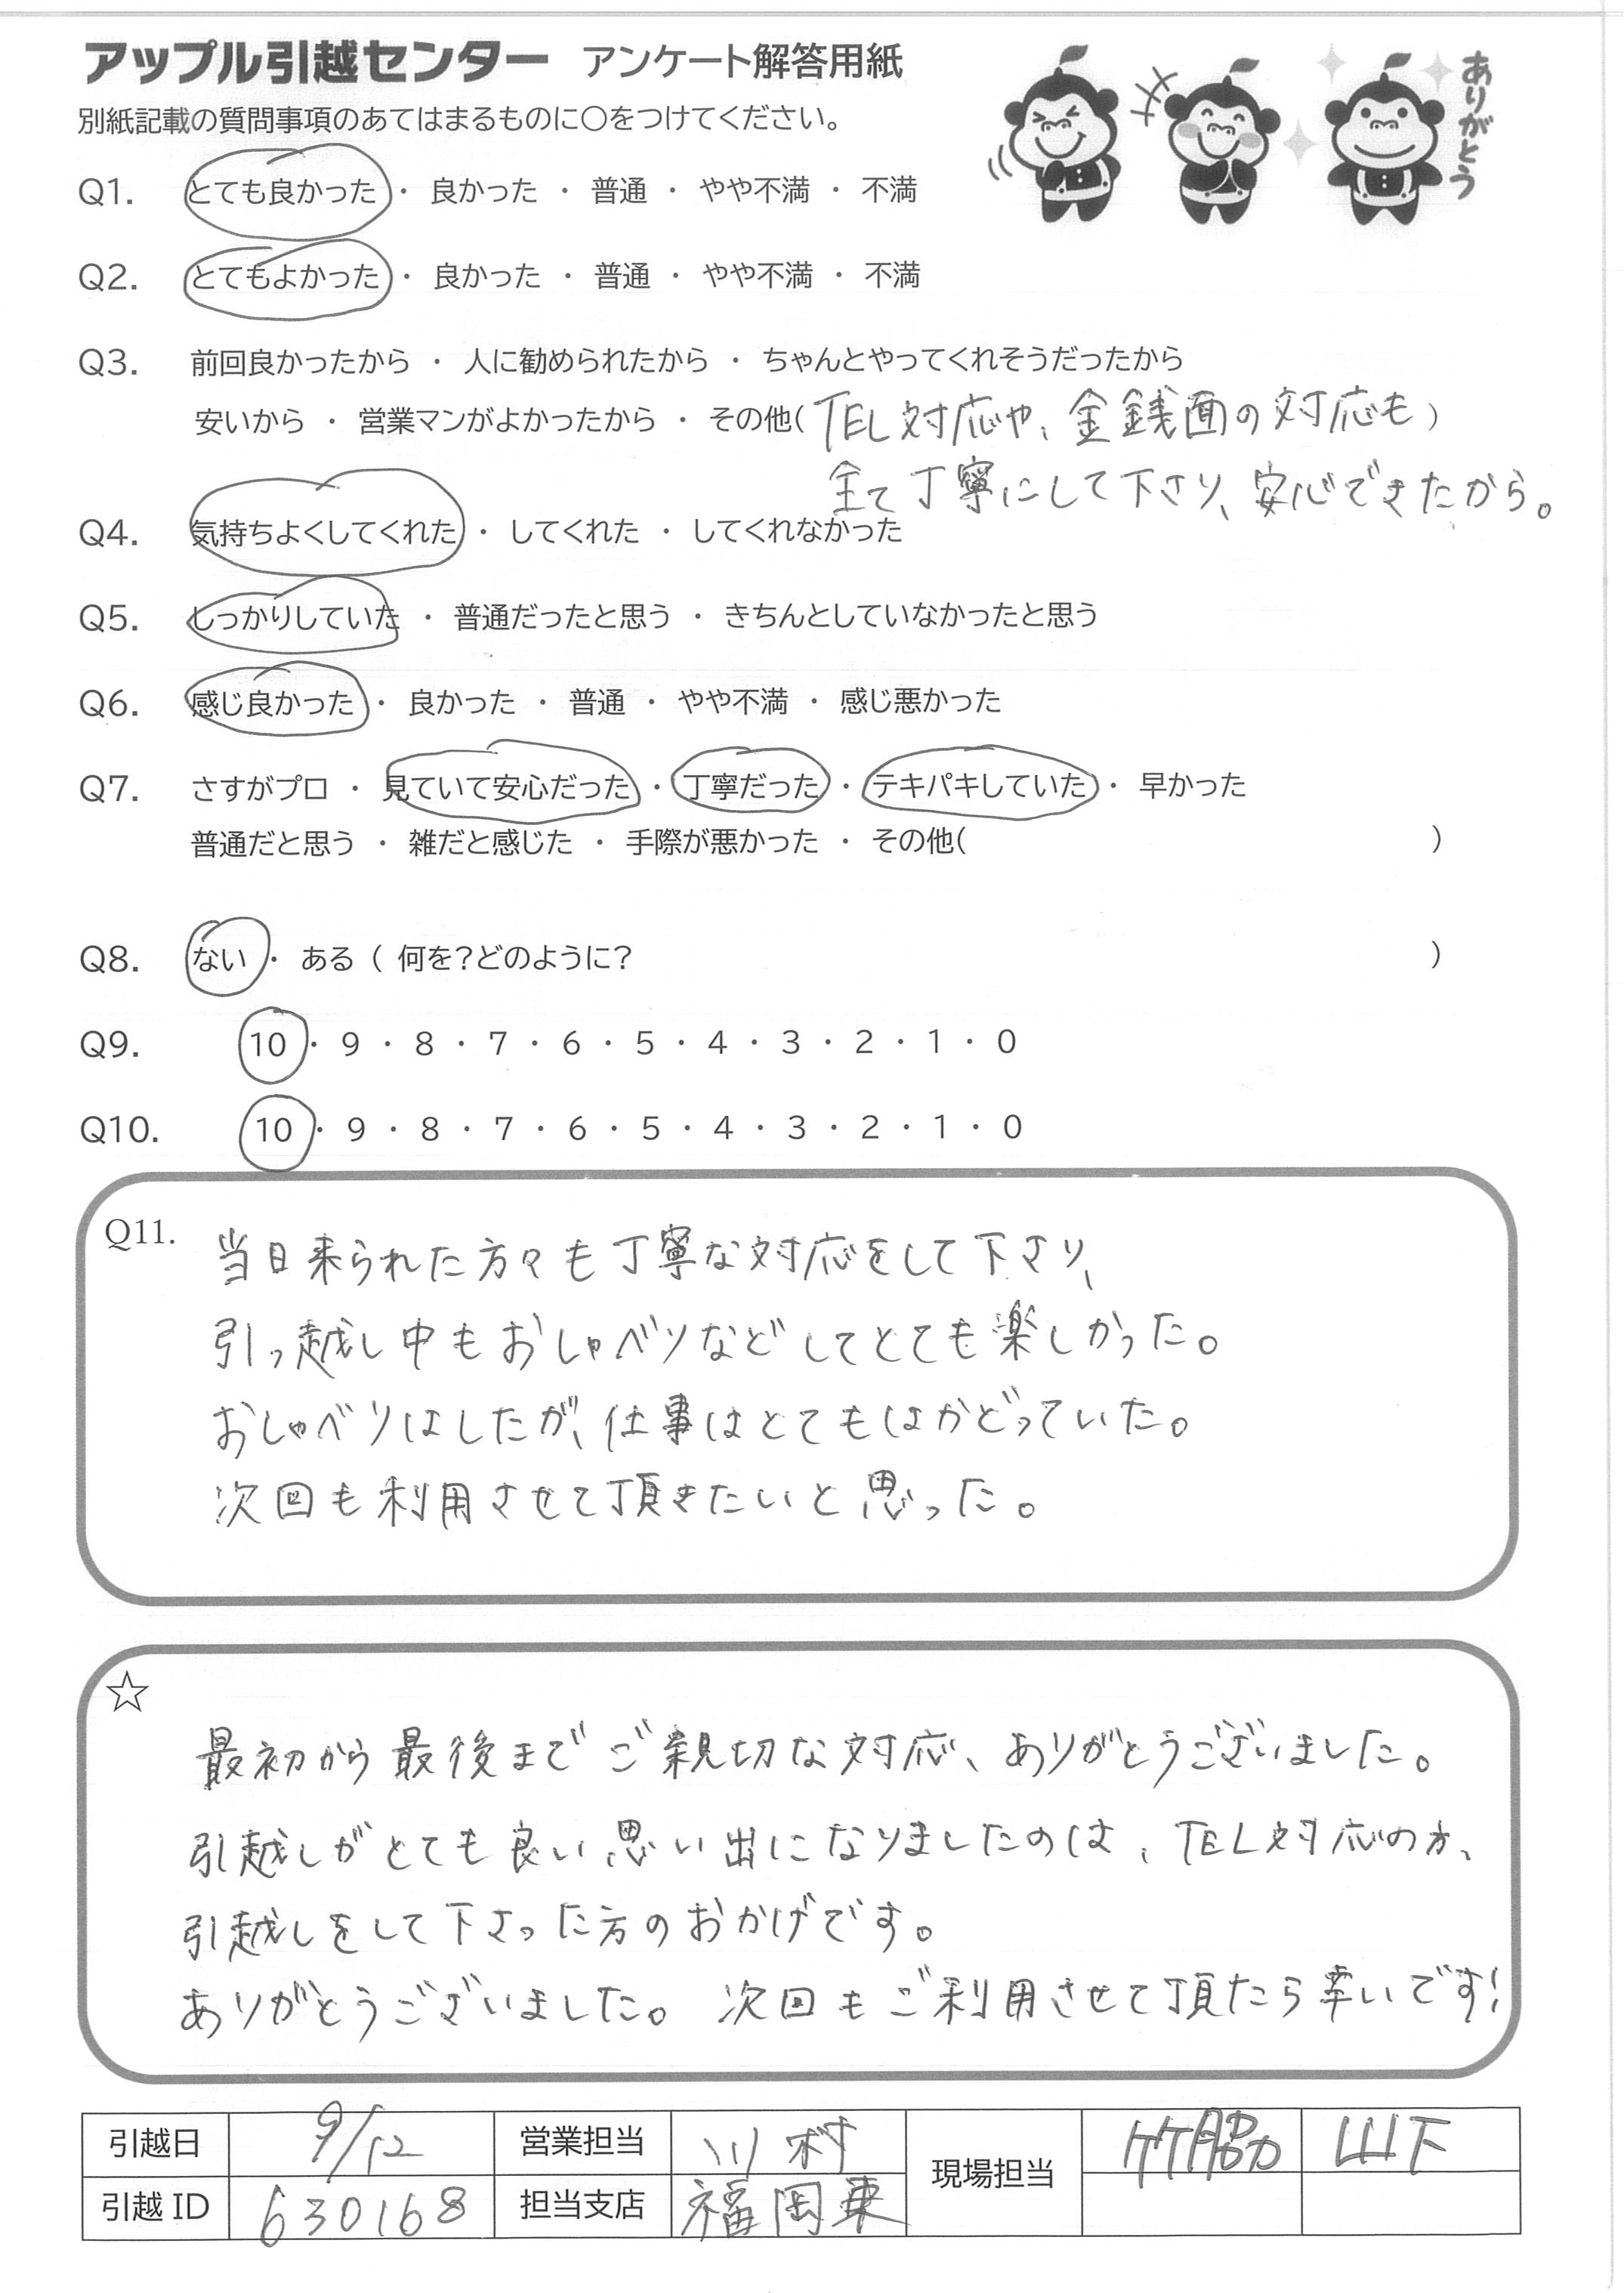 アップル引越センター アンケート解答用紙
ありがとう
別紙記載の質問事項のあてはまるものに○をつけてください。
Q1. とても良かった ・ 良かった ・ 普通 ・ やや不満 ・ 不満
Q2. とてもよかった ・ 良かった ・ 普通 ・ やや不満 ・ 不満
Q3. 前回良かったから ・ 人に勧められたから ・ ちゃんとやってくれそうだったから
安いから ・ 営業マンがよかったから ・ その他( TEL対応や、金銭面の対応も )
全て丁寧にして下さり、安心できたから。
Q4. 気持ちよくしてくれた ・ してくれた ・ してくれなかった
Q5. しっかりしていた ・ 普通だったと思う ・ きちんとしていなかったと思う
Q6. 感じ良かった ・ 良かった ・ 普通 ・ やや不満 ・ 感じ悪かった
Q7. さすがプロ ・ 見ていて安心だった ・ 丁寧だった ・ テキパキしていた ・ 早かった
普通だと思う ・ 雑だと感じた ・ 手際が悪かった ・ その他( )
Q8. ない ・ ある ( 何を?どのように? )
Q9. 10 ・ 9 ・ 8 ・ 7 ・ 6 ・ 5 ・ 4 ・ 3 ・ 2 ・ 1 ・ 0
Q10. 10 ・ 9 ・ 8 ・ 7 ・ 6 ・ 5 ・ 4 ・ 3 ・ 2 ・ 1 ・ 0
Q11. 当日来られた方々も丁寧な対応をして下さり、
引っ越し中もおしゃべりなどしてとても楽しかった。
おしゃべりはしたが、仕事はとてもはかどっていた。
次回も利用させて頂きたいと思った。
☆
最初から最後までご親切な対応、ありがとうございました。
引越しがとても良い思い出になりましたのは、TEL対応の方、
引越しをして下さった方のおかげです。
ありがとうございました。 次回もご利用させて頂たら幸いです!
引越日 9/12 営業担当 川村 現場担当 竹脇 山下
引越ID 630168 担当支店 福岡東